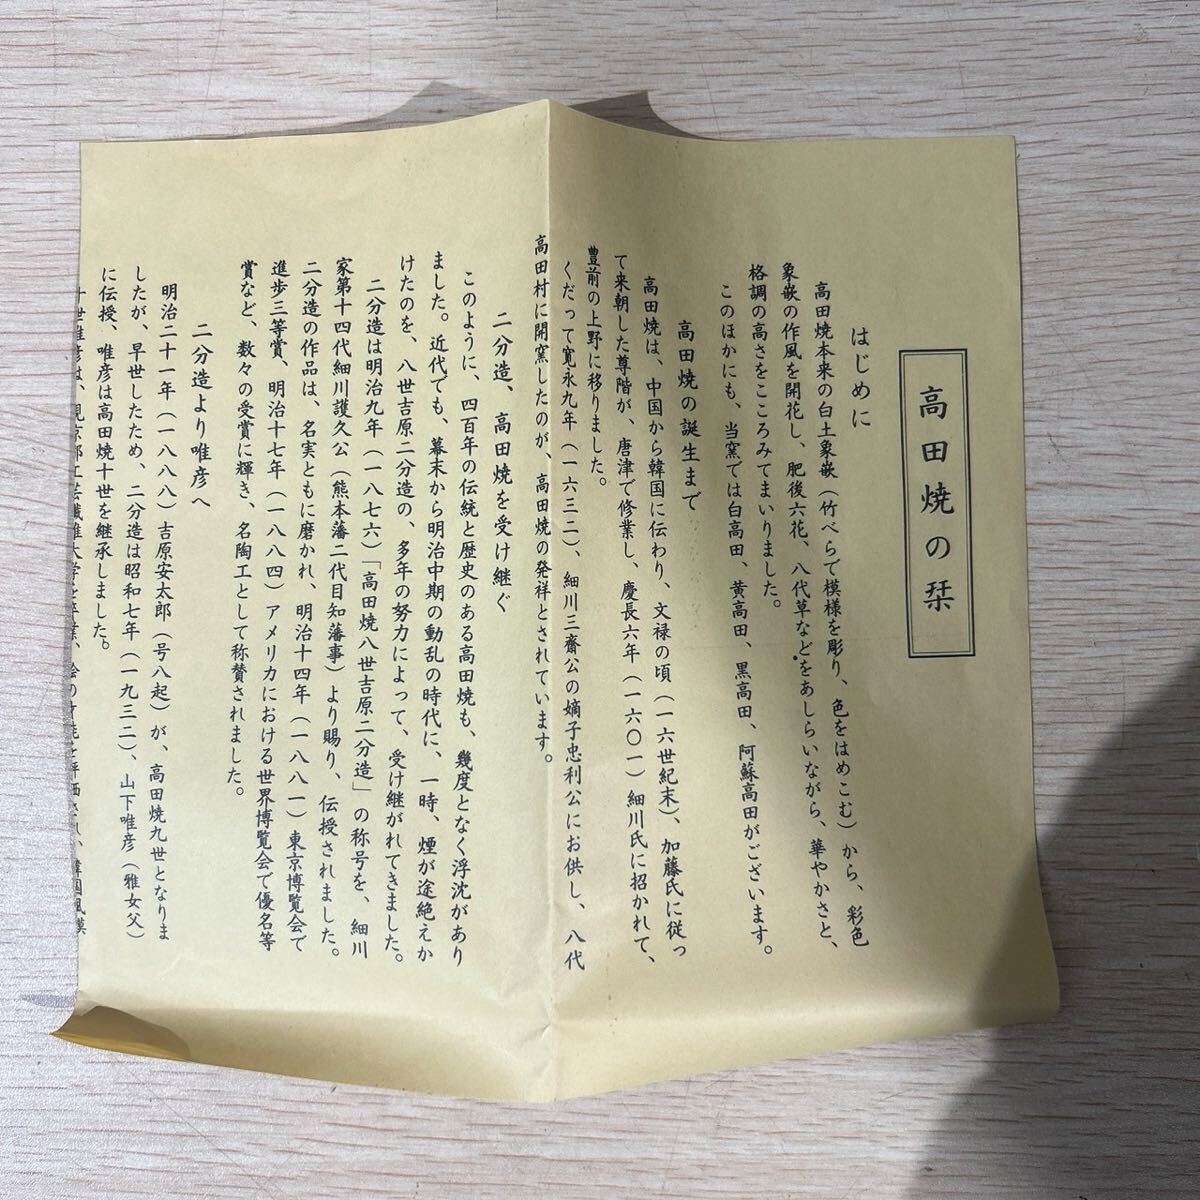 高田焼の栞
はじめに
高田焼本来の白土象嵌（竹べらで模様を彫り、色をはめこむ）から、彩色
象嵌の作風を開花し、肥後六花、八代草などをあしらいながら、華やかさと、
格調の高さをこころみてまいりました。
このほかにも、当窯では白高田、黄高田、黒高田、阿蘇高田がございます。
高田焼の誕生まで
高田焼は、中国から韓国に伝わり、文禄の頃（一六世紀末）、加藤氏に従っ
て来朝した尊階が、唐津で修業し、慶長六年（一六〇一）細川氏に招かれて、
豊前の上野に移りました。
くだって寛永九年（一六三二）、細川三齋公の嫡子忠利公にお供し、八代
高田村に開窯したのが、高田焼の発祥とされています。
二分造、高田焼を受け継ぐ
このように、四百年の伝統と歴史のある高田焼も、幾度となく浮沈があり
ました。近代でも、幕末から明治中期の動乱の時代に、一時、煙が途絶えか
けたのを、八世吉原二分造の、多年の努力によって、受け継がれてきました。
二分造は明治九年（一八七六）「高田焼八世吉原二分造」の称号を、細川
家第十四代細川護久公（熊本藩二代目知藩事）より賜り、伝授されました。
二分造の作品は、名実ともに磨かれ、明治十四年（一八八一）東京博覧会で
進歩三等賞、明治十七年（一八八四）アメリカにおける世界博覧会で優名等
賞など、数々の受賞に輝き、名陶工として称賛されました。
二分造より唯彦へ
明治二十一年（一八八八）吉原安太郎（号八起）が、高田焼九世となりま
したが、早世したため、二分造は昭和七年（一九三二）、山下唯彦（雅女父）
に伝授、唯彦は高田焼十世を継承しました。
十世唯彦は、現京都工芸繊維大学を卒業、絵の才能を評価され、韓国風模